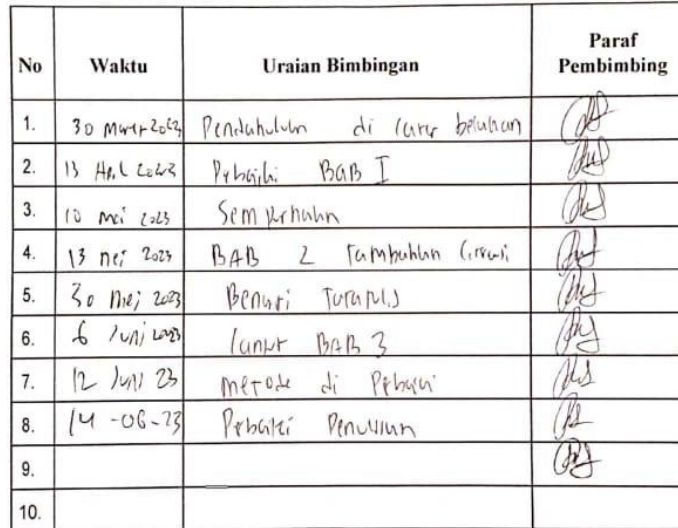 No Waktu Uraian Bimbingan Paraf Pembimbing
1. 30 Maret 2023 Pendahuluan di latar belakan
2. 13 April 2023 Pebaiki BAB I
3. 10 mei 2023 Sempurnakan
4. 13 mei 2023 BAB 2 tambahkan
5. 30 Mei 2023 Benari
6. 6 Juni 2023 lanjut BAB 3
7. 12 Juni 23 metode di Pebaiki
8. 14-06-23 Pebaiki Penulisan
9.
10.